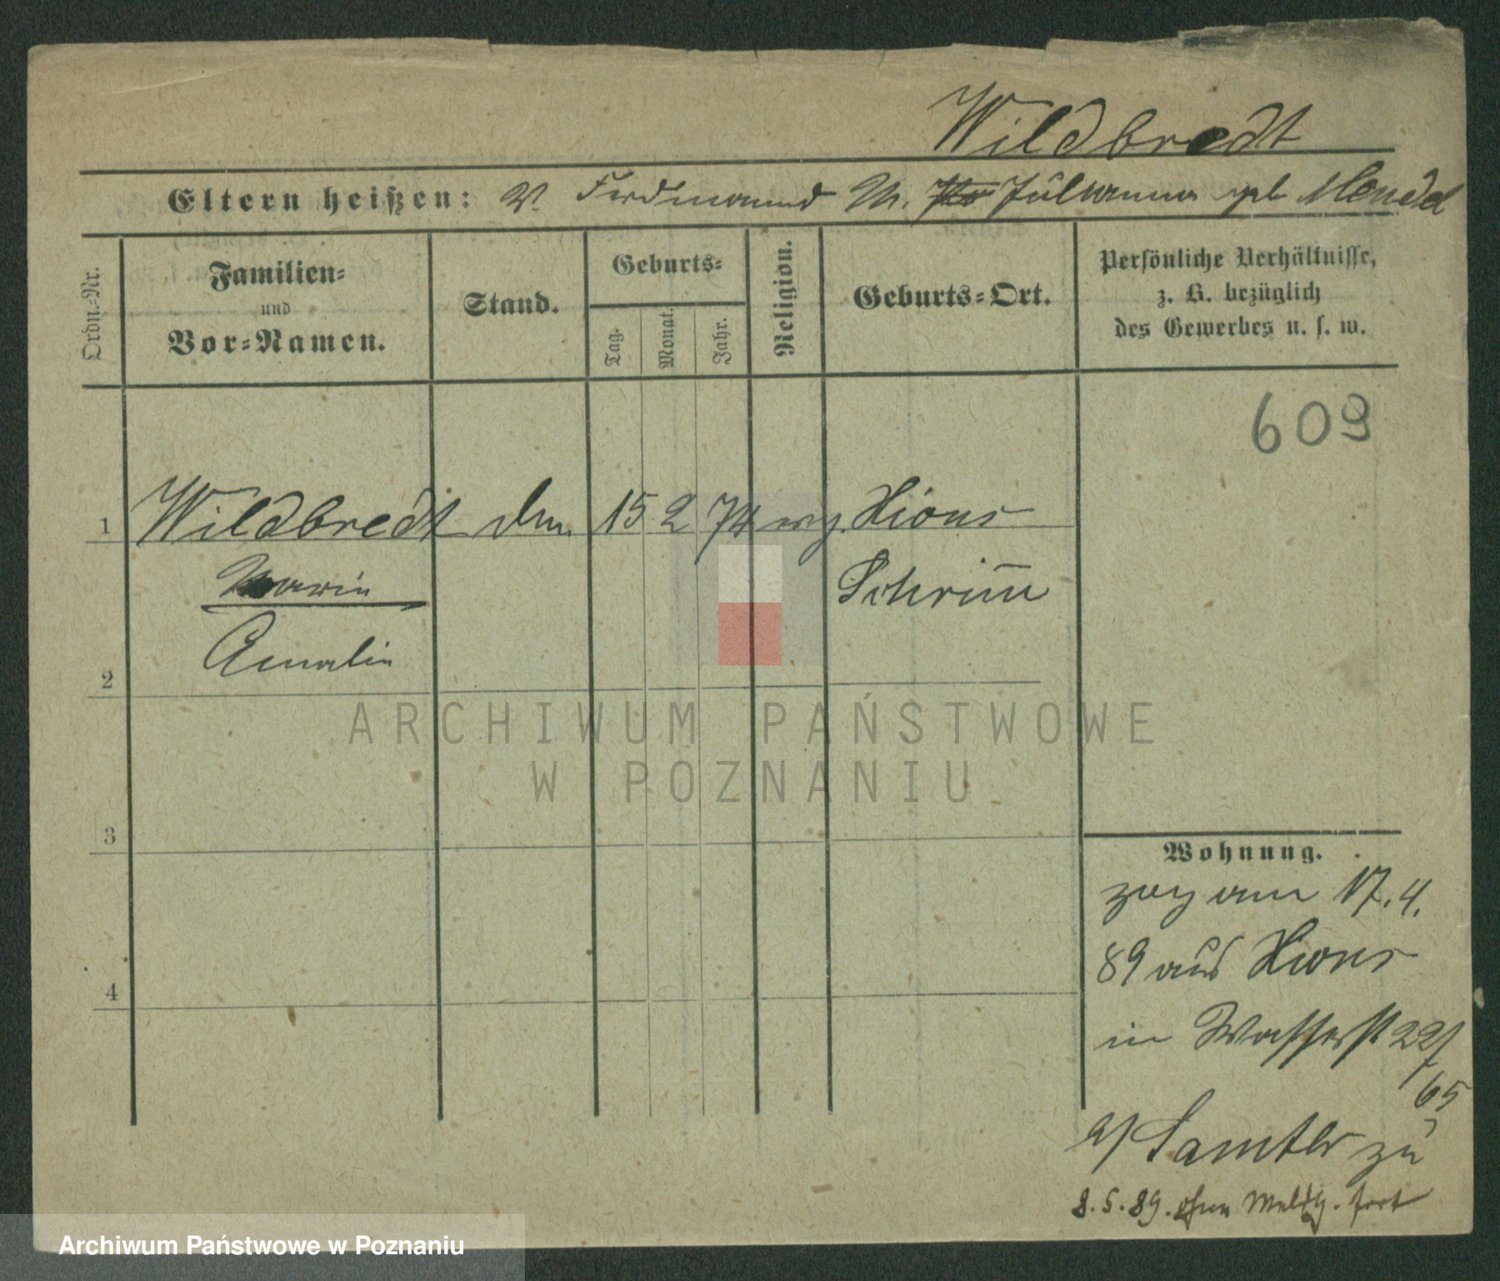 Wildbredt
Eltern heißen: V. Ferdinand M. Julianna geb Mendel
Ordn.-Nr.
Familien-
und
Vor-Namen.
Stand.
Geburts-
Tag.
Monat.
Jahr.
Religion.
Geburts-Ort.
Persönliche Verhältnisse,
z. B. bezüglich
des Gewerbes u. s. w.
609
1 Wildbredt 15 2 74 evg. Xions
Marie Schrimm
Amalie
2
3
4
Wohnung.
zog am 17.4.
89 aus Xions
in Wasserst 22/
65
a/ Samter zu
8.5.89. ohne Meldg. fort
ARCHIWUM PAŃSTWOWE
W POZNANIU
Archiwum Państwowe w Poznaniu